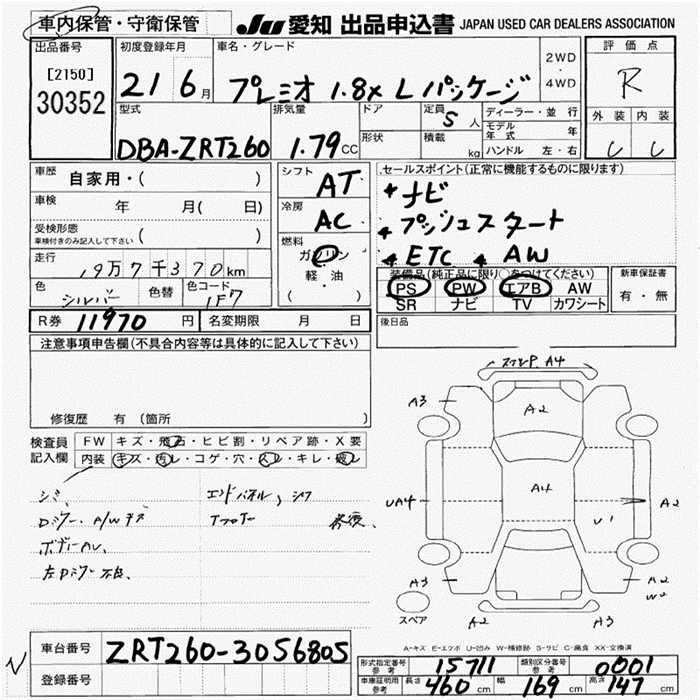 車内保管・守衛保管 JU 愛知 出品申込書 JAPAN USED CAR DEALERS ASSOCIATION
出品番号 初度登録年月 車名・グレード 評価点
[2150] 21 6月 プレミオ 1.8X Lパッケージ 2WD R
30352 4WD
型式 排気量 ドア 定員 5人 ディーラー・並行 外装 内装
DBA-ZRT260 1.79CC 形状 積載 kg モデル年式 年
ハンドル 左・右
車歴 自家用・( ) シフト AT セールスポイント(正常に機能するものに限ります)
車検 年 月( 日) 冷房 AC ナビ
受検形態 プッシュスタート
車検付きのみ記入して下さい ( ) 燃料 ガソリン ETC AW
走行 19万7千370km 軽・油 装備品(純正品に限り○をつけてください) 新車保証書
色 シルバー 色替 色コード 1F7 ( ・ ) PS PW エアB AW 有・無
SR ナビ TV カワシート
R券 11970円 名変期限 月 日 後日品
注意事項申告欄(不具合内容等は具体的に記入して下さい)
修復歴 有 (箇所 )
検査員 FW キズ・飛石・ヒビ割・リペア跡・X要
記入欄 内装 キズ・汚レ・コゲ・穴・スレ・キレ・破レ
エンドパネル
A4
A3 A2
UA4 A4 A2
U1
A3 A2
W2
スペア A2 A3
A-キズ E-エクボ U-凹み W-補修跡 S-サビ C-腐食 XX-交換済
車台番号 ZRT260-3056805
登録番号
形式指定番号 参考 15711 類別区分番号 参考 0001
車庫証明用 参考 長さ 460cm 幅 169cm 高さ 147cm